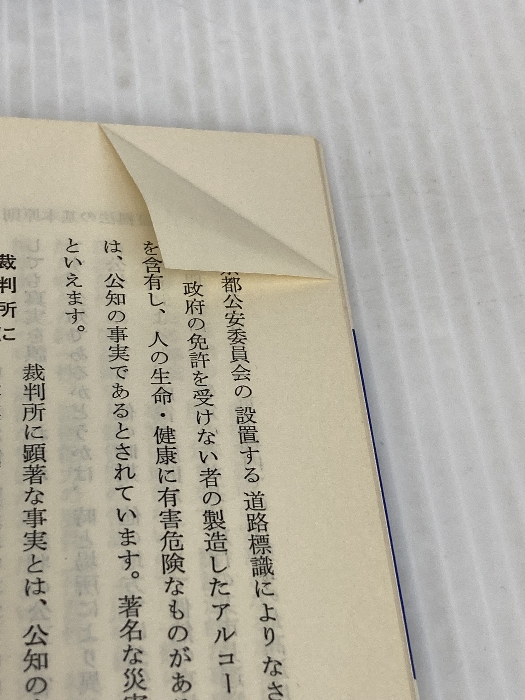 京都公安委員会の設置する道路標識によりなさ
政府の免許を受けない者の製造したアルコー
を含有し、人の生命・健康に有害危険なものがあ
は、公知の事実であるとされています。著名な災害
といえます。
裁判所に顕著な事実とは、公知の
裁判所に